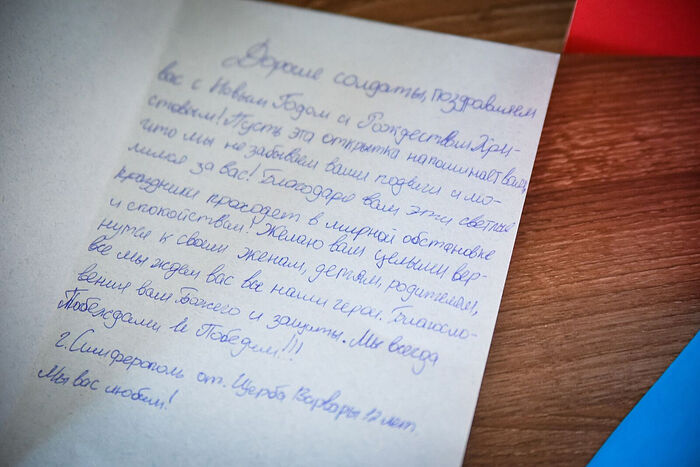 Дорогие солдаты, поздравляем
вас с Новым Годом и Рождеством Хри-
стовым! Пусть эта открытка напоминает вам,
что мы не забываем ваши подвиги и мо-
лимся за вас! Благодаря вам эти светлые
праздники проходят в мирной обстановке
и спокойствии! Желаю вам целыми вер-
нутся к своим женам, детям, родителям,
все мы ждем вас все наши герои. Благосло-
вения вам Божего и защиты. Мы всегда
Побеждали и Победим!!!
г. Симферополь от. Щерба Варвары 12 лет.
Мы вас любим!